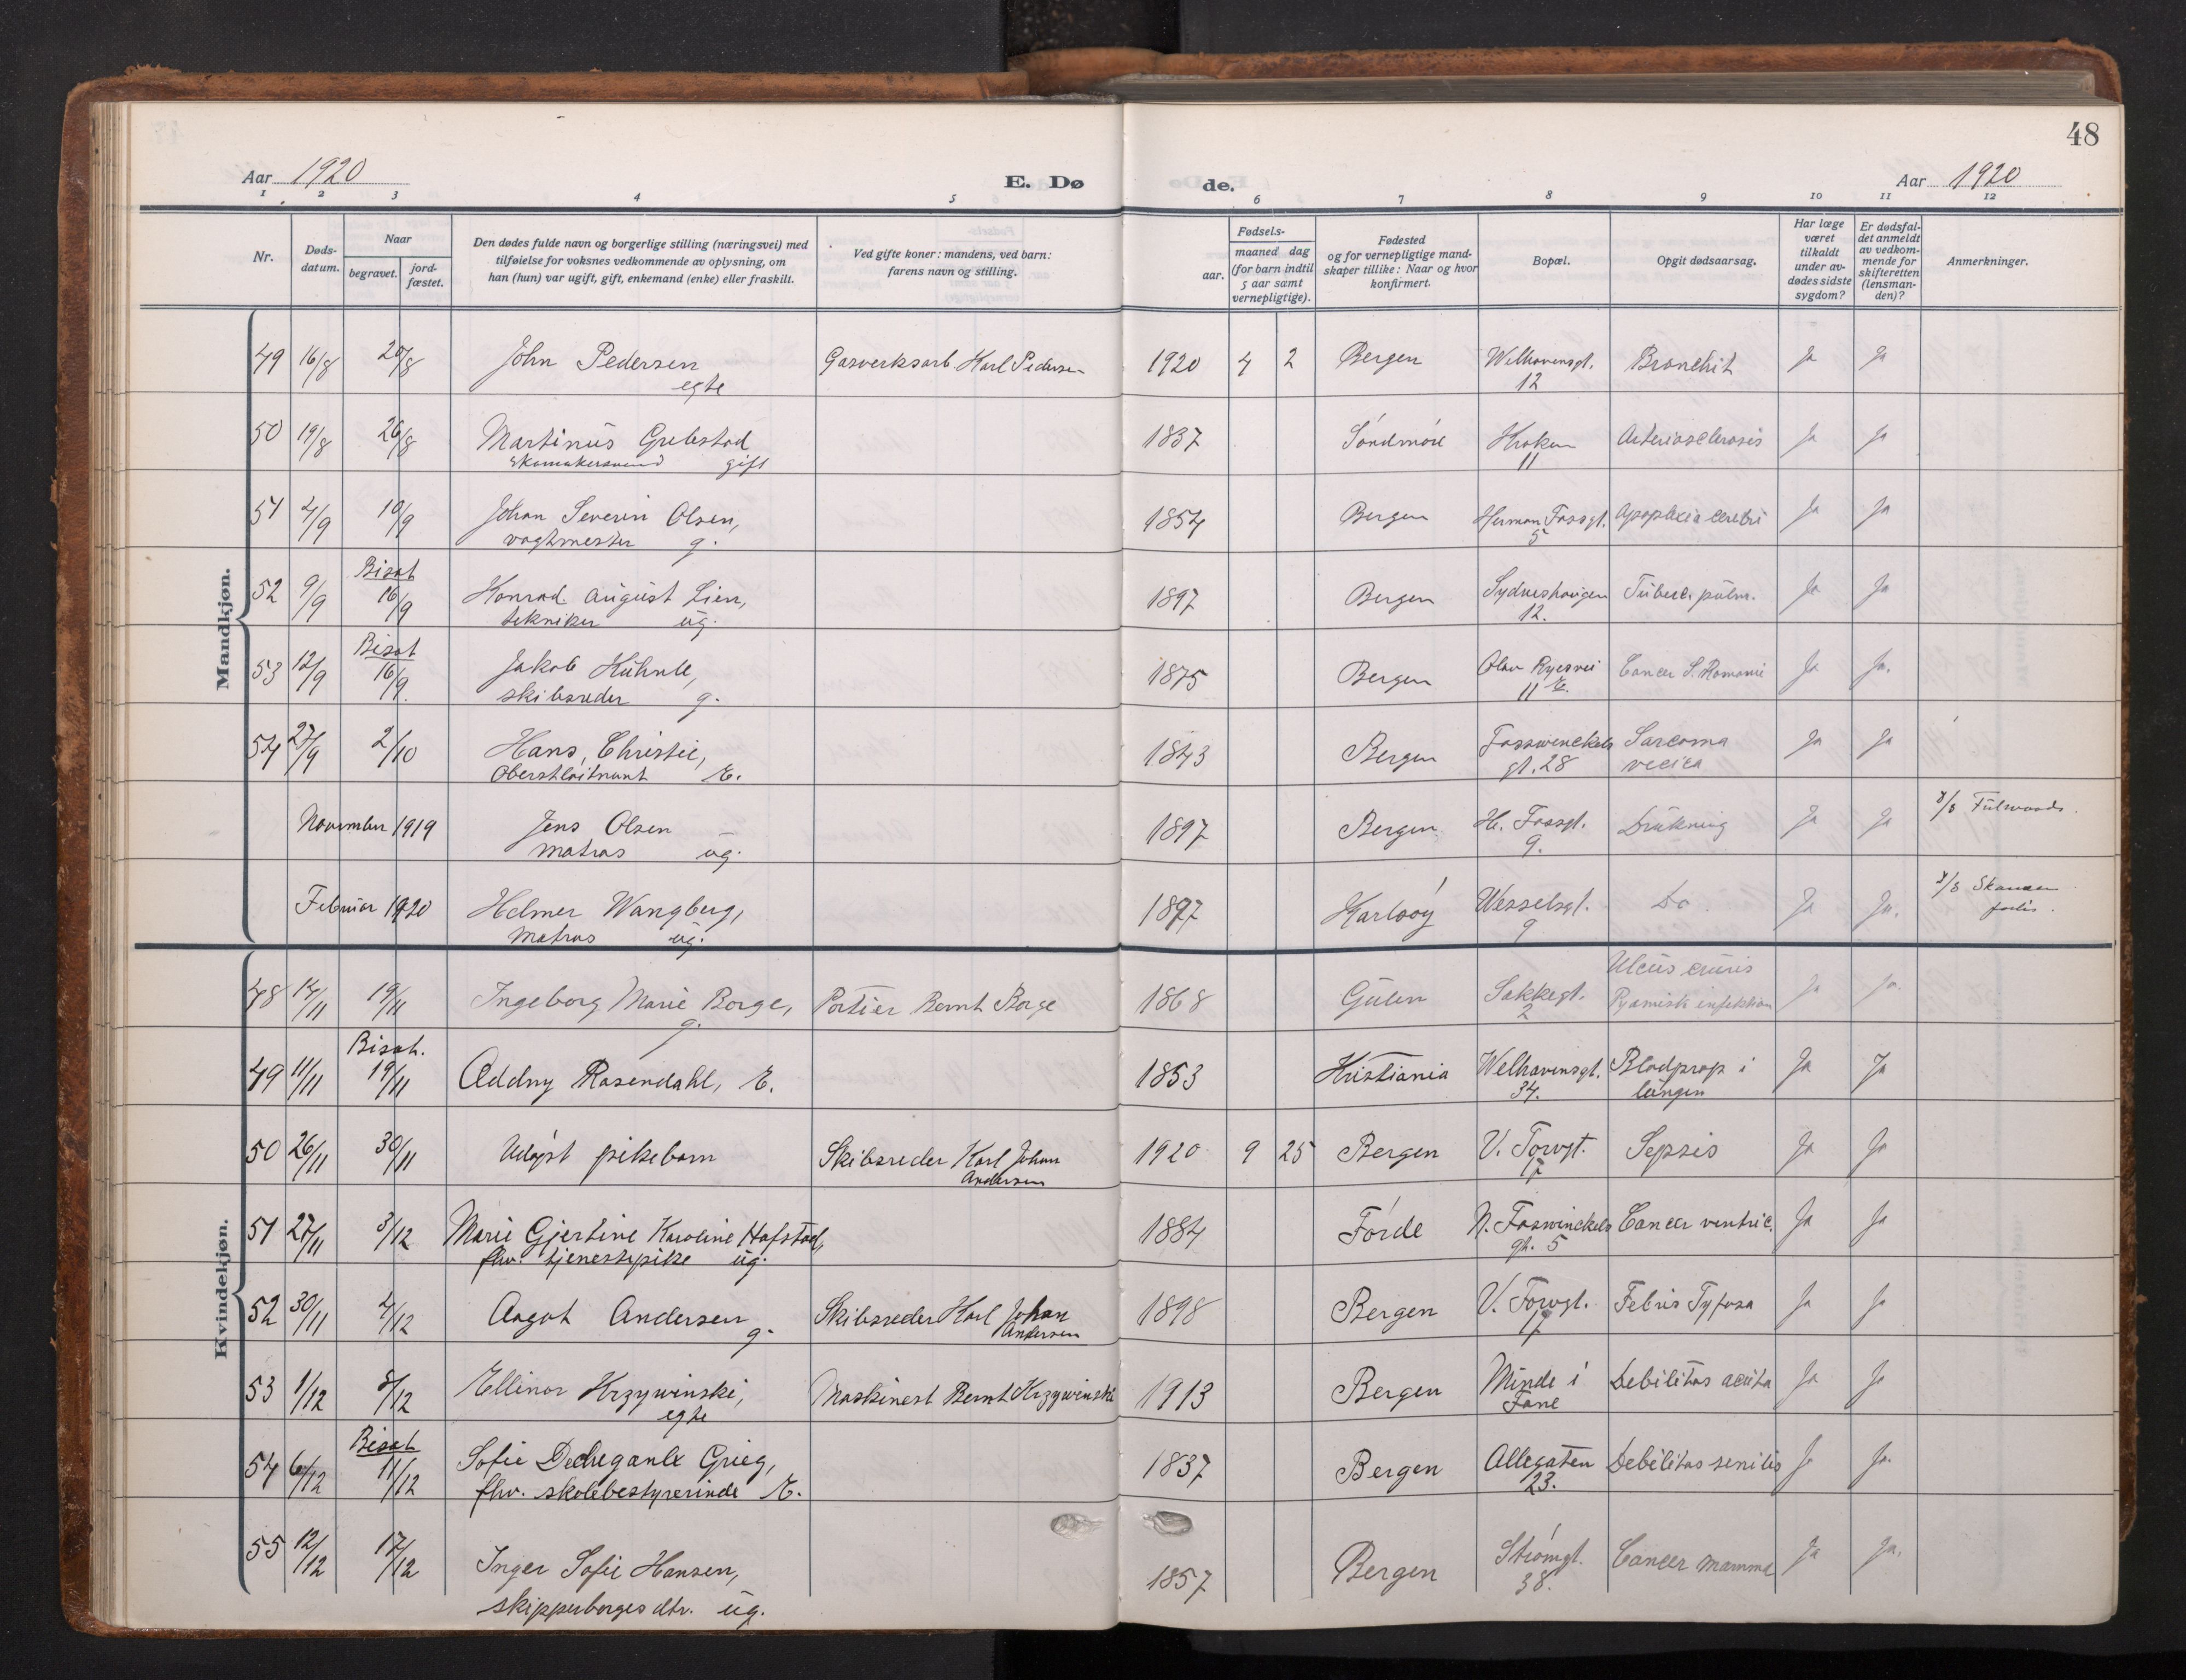 48
Aar 1920 E. Dø de. Aar 1920
1 2 3 4 5 6 7 8 9 10 11 12
Nr.
Døds-
datum.
Naar
begravet.
jord-
fæstet.
Den dødes fulde navn og borgerlige stilling (næringsvei) med
tilføielse for voksnes vedkommende av oplysning, om
han (hun) var ugift, gift, enkemand (enke) eller fraskilt.
Ved gifte koner: mandens, ved barn:
farens navn og stilling.
Fødsels-
aar.
maaned dag
(for barn indtil
5 aar samt
vernepligtige).
Fødested
og for vernepligtige mand-
skaper tillike: Naar og hvor
konfirmert.
Bopæl.
Opgit dødsaarsag.
Har læge
været
tilkaldt
under av-
dødes sidste
sygdom?
Er dødsfal-
det anmeldt
av vedkom-
mende for
skifteretten
(lensman-
den)?
Anmerkninger.
Mandkjøn.
49 16/8 20/8 John Pedersen Gasverksarb. Karl Pedersen 1920 4 2 Bergen Welhavensgt. Bronchit Ja Ja
egte 12
50 19/8 26/8 Martinus Grebstad 1837 Söndmöre Kroken Arteriosclerosis Ja Ja
skomakersvend gift 11
51 4/9 10/9 Johan Severin Olsen, 1854 Bergen Herman Fossgt. Apoplexia cerebri Ja Ja
vagtmester g. 5
Bisat
52 9/9 16/9 Konrad August Lien, 1897 Bergen Sydneshaugen Tuberc. pulm. Ja Ja
tekniker ug. 12.
Bisat
53 12/9 16/9. Jakob Kuhnle, 1875 Bergen Olav Ryesvei Cancer S. Romanii Ja Ja.
skibsreder g. 11 E.
54 27/9 2/10 Hans Christie, 1843 Bergen Fosswinckels Sarcoma Ja Ja
Oberstløitnant E. gt. 28 vecica
November 1919 Jens Olsen 1897 Bergen H. Fossgt. Drukning Ja Ja
Matros ug. 9.
Februar 1920 Helmer Wangberg, 1897 Karlsöy Wesselsgt. Do. Ja Ja. Skansen
Matros ug. 9 forlis.
Kvindekjøn.
Ulcus cruris
48 14/11 19/11 Ingeborg Marie Borge, Portier Bernt Borge 1868 Gulen Sekkegt. Pyæmisk infektion Ja Ja.
g. 2
Bisat.
49 11/11 19/11 Oddny Rosendahl, E. 1853 Kristiania Welhavensgt. Blodprop i Ja Ja
34. lungen
50 26/11 30/11 Udøpt pikebarn Skibsreder Karl Johan 1920 9 25 Bergen V. Torvgt. Sepsis Ja Ja
Andersen
51 27/11 3/12 Marie Gjertine Karoline Hofstad, 1884 Förde N. Foswinckels Cancer ventric. Ja Ja
fhv. tjenestepike ug. gt. 5
52 30/11 4/12 Aagot Andersen Skibsreder Karl Johan 1898 Bergen V. Torvgt. Febris Tyfosa Ja Ja
g. Andersen
53 1/12 8/12 Ellinor Krzywinski, Maskinest Bernt Krzywinski 1913 Bergen Minde i Debilitas acuta Ja Ja
egte Fane
Bisat
54 6/12 11/12 Sofie Dechezaule Grieg, 1837 Bergen Allegaten Debilitas senilis Ja Ja.
fhv. skolebestyrerinde E. 23.
55 12/12 17/12 Inger Sofie Hansen, 1857 Bergen Strömgt. Cancer mamma Ja Ja.
skipperborges dtr. ug. 38.